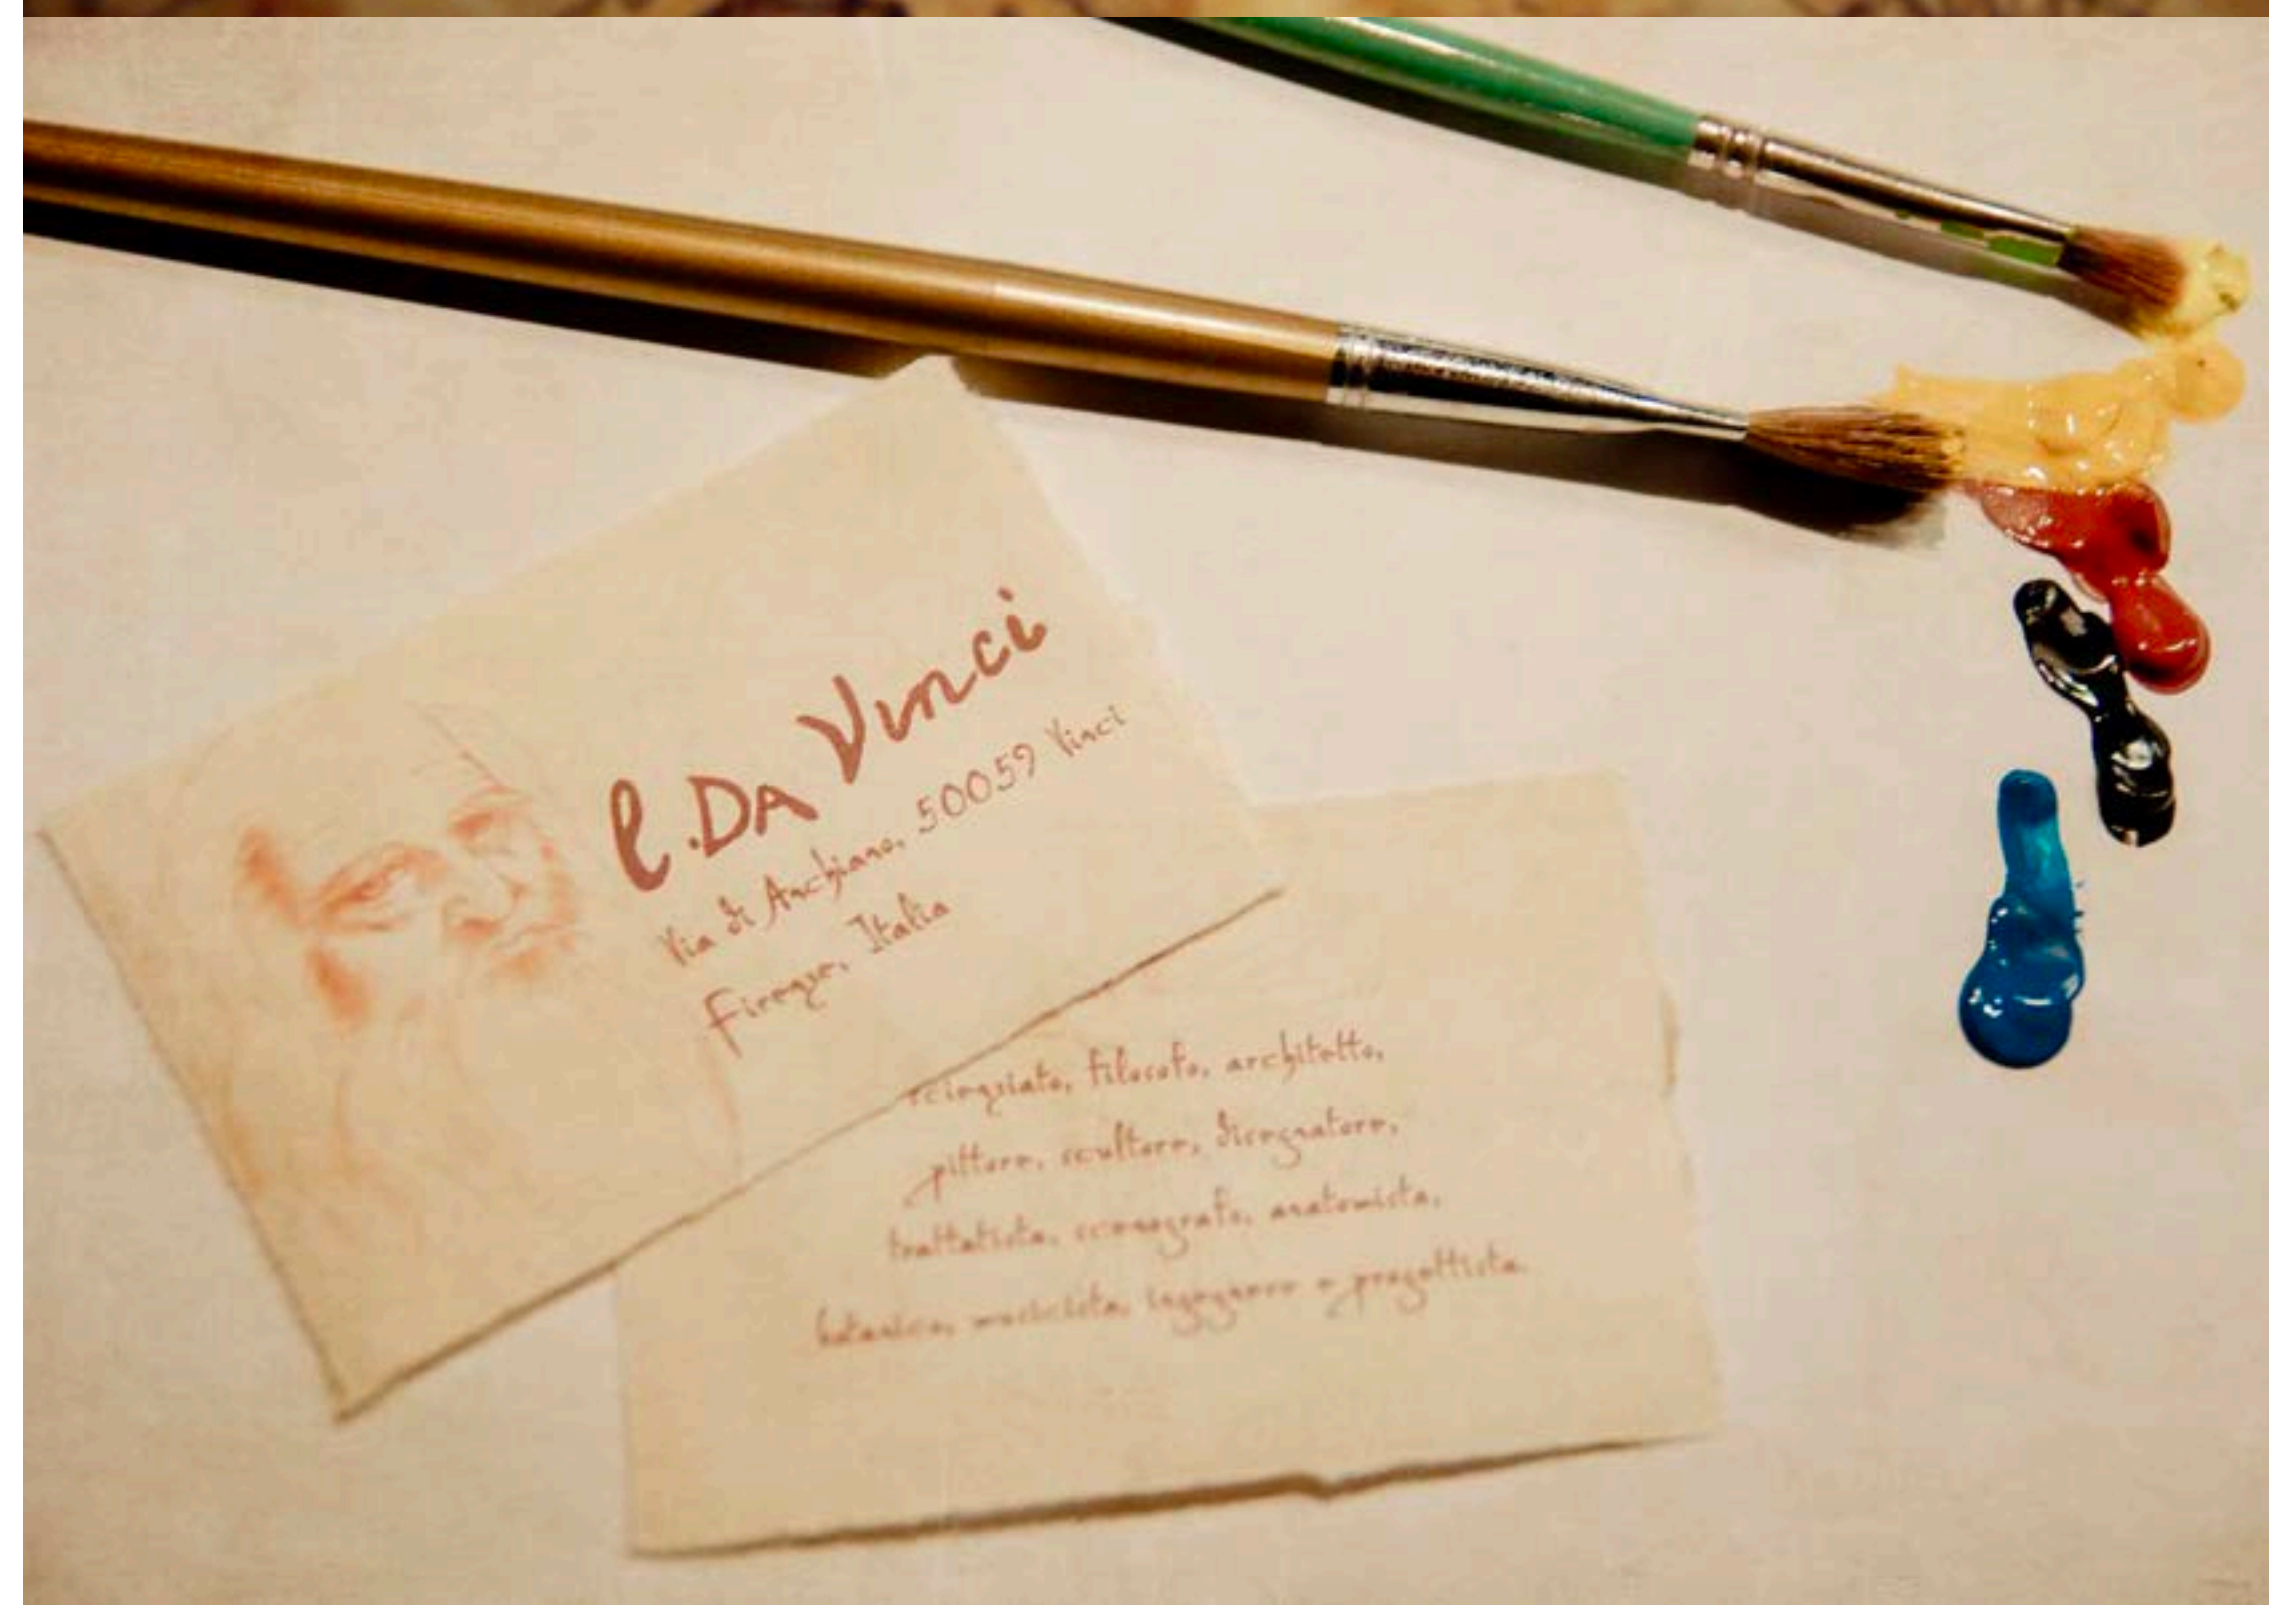 l.DA Vinci
Via di Anchiano, 50059 Vinci
Firenze, Italia
scienziato, filosofo, architetto,
pittore, scultore, disegnatore,
trattatista, scenografo, anatomista,
botanico, musicista, ingegnere e progettista.